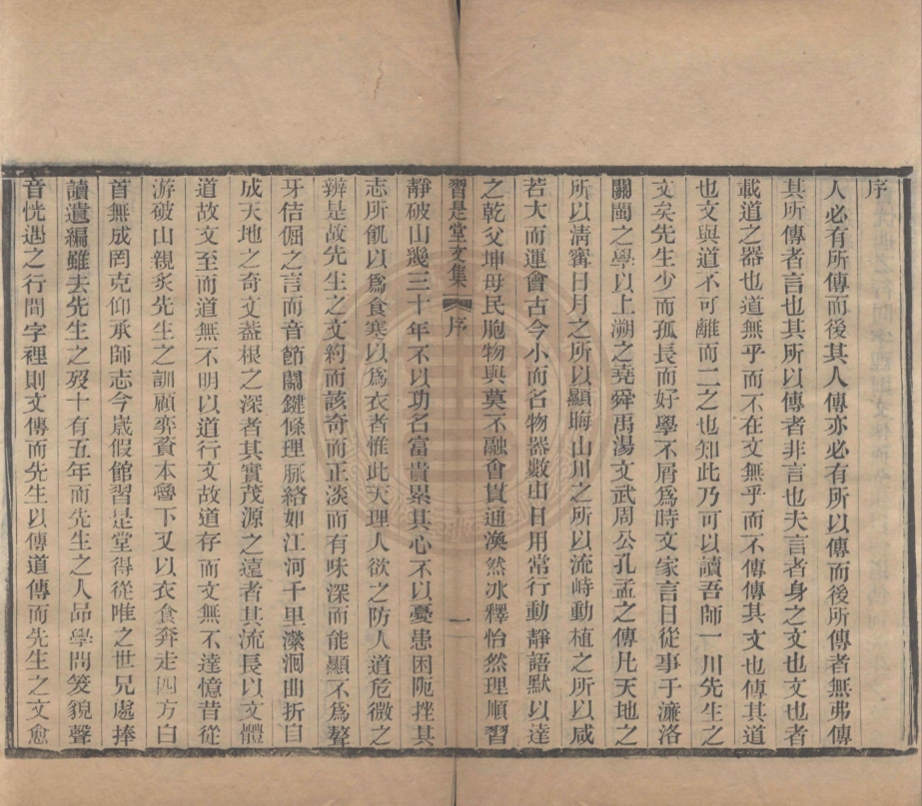 序
人必有所傳而後其人傳亦必有所以傳而後所傳者無弗傳
其所傳者言也其所以傳者非言也夫言者身之文也文也者
載道之器也道無乎而不在文無乎而不傳傳其文也傳其道
也文與道不可離而二之也知此乃可以讀吾師一川先生之
文矣先生少而孤長而好學不屑爲時文家言日從事于濂洛
關閩之學以上溯之堯舜禹湯文武周公孔孟之傳凡天地之
所以淸寗日月之所以顯晦山川之所以流峙動植之所以咸
若大而運會古今小而名物器數山日用常行動靜語默以達
之乾父坤母民胞物與莫不融會貫通渙然冰釋怡然理順習
習是堂文集 序 一
靜破山幾三十年不以功名富貴累其心不以憂患困阨挫其
志所飢以爲食寒以爲衣者惟此天理人欲之防人道危微之
辨是故先生之文約而該奇而正淡而有味深而能顯不爲聱
牙佶倔之言而音節關鍵條理脈絡如江河千里瀠洄曲折自
成天地之奇文葢根之深者其實茂源之遠者其流長以文體
道故文至而道無不明以道行文故道存而文無不達憶昔從
游破山親炙先生之訓顧弈賚本魯下又以衣食奔走四方白
首無成罔克仰承師志今歲假館習是堂得從唯之世兄處捧
讀遺編雖去先生之歿十有五年而先生之人品學問笑貌聲
音恍遇之行間字裡則文傳而先生以傳道傳而先生之文愈